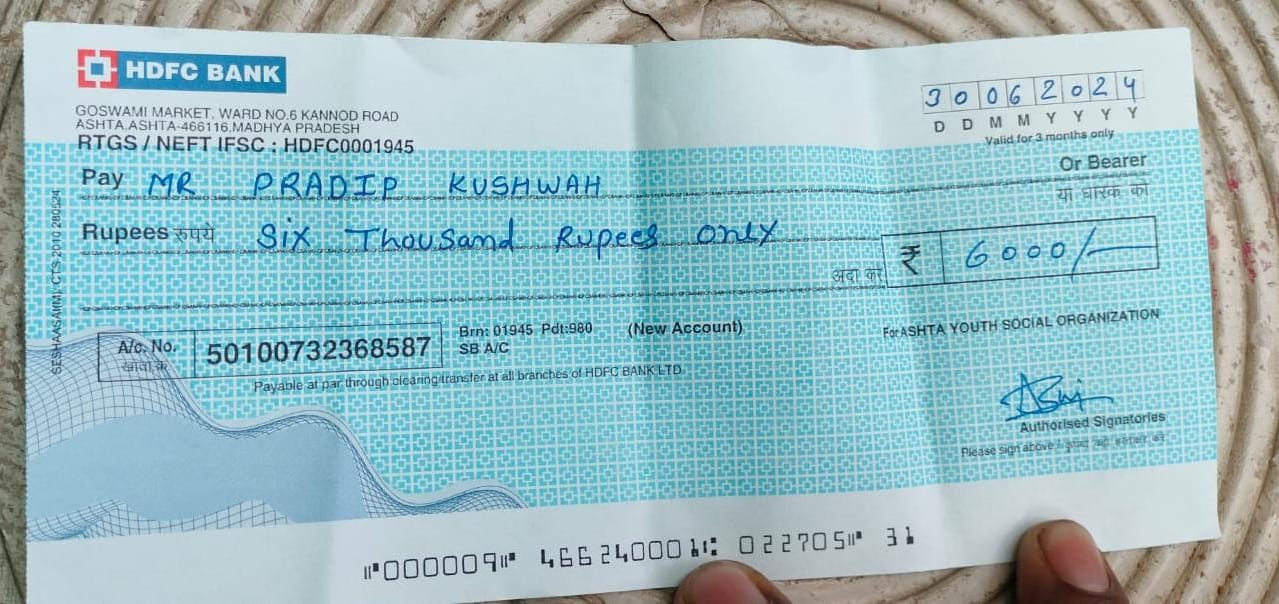 HDFC BANK
GOSWAMI MARKET, WARD NO.6 KANNOD ROAD
ASHTA,ASHTA-466116,MADHYA PRADESH
RTGS / NEFT IFSC : HDFC0001945
30062024
D D M M Y Y Y Y
Valid for 3 months only
Pay MR PRADIP KUSHWAH
Or Bearer
या धारक को
Rupees रुपये Six Thousand Rupees only
अदा करें ₹ 6000/-
A/c. No. 50100732368587
खाता क्र.
Brn: 01945 Pdt:980 (New Account)
SB A/C
For ASHTA YOUTH SOCIAL ORGANIZATION
Payable at par through clearing/transfer at all branches of HDFC BANK LTD
Authorised Signatories
Please sign above /
CTS-2010
⑈000009⑈ 466240001⑆ 022705⑈ 31